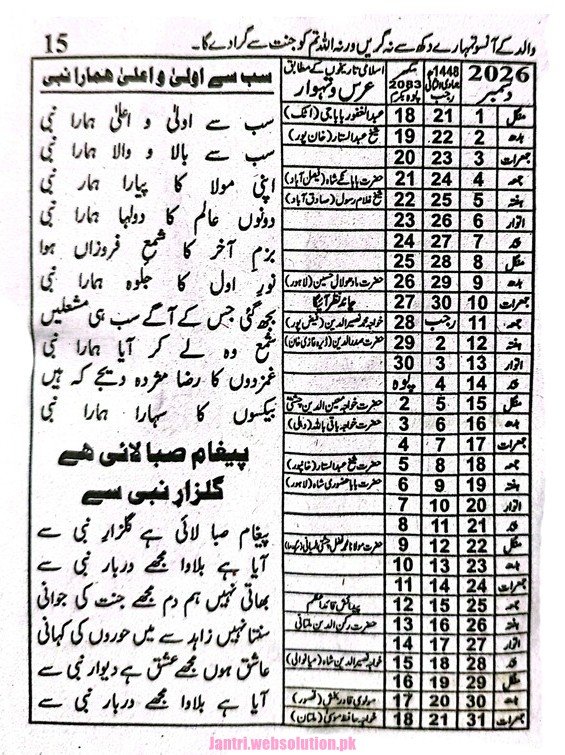 والد کے آنسو تمہارے دکھ سے نہ گریں ورنہ اللہ تم کو جنت سے گرا دے گا۔ 15
سب سے اولیٰ و اعلیٰ ہمارا نبی
سب سے اولیٰ و اعلیٰ ہمارا نبی
سب سے بالا و والا ہمارا نبی
اپنی مولا کا پیارا ہمار نبی
دونوں عالم کا دولہا ہمارا نبی
بزمِ آخر کا شمعِ فروزاں ہوا
نورِ اول کا جلوہ ہمارا نبی
بجھ گئی جس کے آگے سب ہی مشعلیں
شمع وہ لے کر آیا ہمارا نبی
غمزدوں کا رضا مژدہ دیجے کہ ہیں
بیکسوں کا سہارا ہمارا نبی
پیغام صبا لائی ھے
گلزارِ نبی سے
پیغام صبا لائی ہے گلزارِ نبی سے
آیا ہے بلاوا مجھے دربارِ نبی سے
بھاتی نہیں ہم دم مجھے جنت کی جوانی
سنتا نہیں زاہد سے میں حوروں کی کہانی
عاشق ہوں مجھے عشق ہے دیوارِ نبی سے
آیا ہے بلاوا مجھے دربارِ نبی سے
2026 دسمبر 1448ھ جمادی الثانی رجب بکرمی 2083 اسلامی تاریخوں کے مطابق عرس و تہوار
منگل 1 21 18 عبدالغفور باباجی (اٹک)
بدھ 2 22 19 شیخ عبدالستار (خان پور)
جمعرات 3 23 20
جمعہ 4 24 21 حضرت بابا کے شاہ (فیصل آباد)
ہفتہ 5 25 22 شیخ غلام رسول (صادق آباد)
اتوار 6 26 23
پیر 7 27 24
منگل 8 28 25
بدھ 9 29 26 حضرت مادھولال حسین (لاہور)
جمعرات 10 30 27 چاند نظر آئیگا
جمعہ 11 رجب 28 خواجہ محمد نصیرالدین (فیض پور)
ہفتہ 12 2 29 حضرت صدرالدین (ڈیرہ غازی خان)
اتوار 13 3 30
پیر 14 4 پوہ
منگل 15 5 2 حضرت خواجہ معین الدین چشتی
بدھ 16 6 3 حضرت خواجہ باقی باللہ (دہلی)
جمعرات 17 7 4
جمعہ 18 8 5 حضرت شیخ عبدالستار (خانپور)
ہفتہ 19 9 6 حضرت بابا حضوری شاہ (لاہور)
اتوار 20 10 7
پیر 21 11 8
منگل 22 12 9 حضرت مولانا محمد
بدھ 23 13 10
جمعرات 24 14 11
جمعہ 25 15 12 پیدائش قائداعظم
ہفتہ 26 16 13 حضرت رکن الدین ملتانی
اتوار 27 17 14
پیر 28 18 15 خواجہ نصیرالدین شاہ (میانوالی)
منگل 29 19 16
بدھ 30 20 17 مولوی قادر بخش (قصور)
جمعرات 31 21 18 خواجہ حافظ موسیٰ (ملتان)
Jantri.websolution.pk